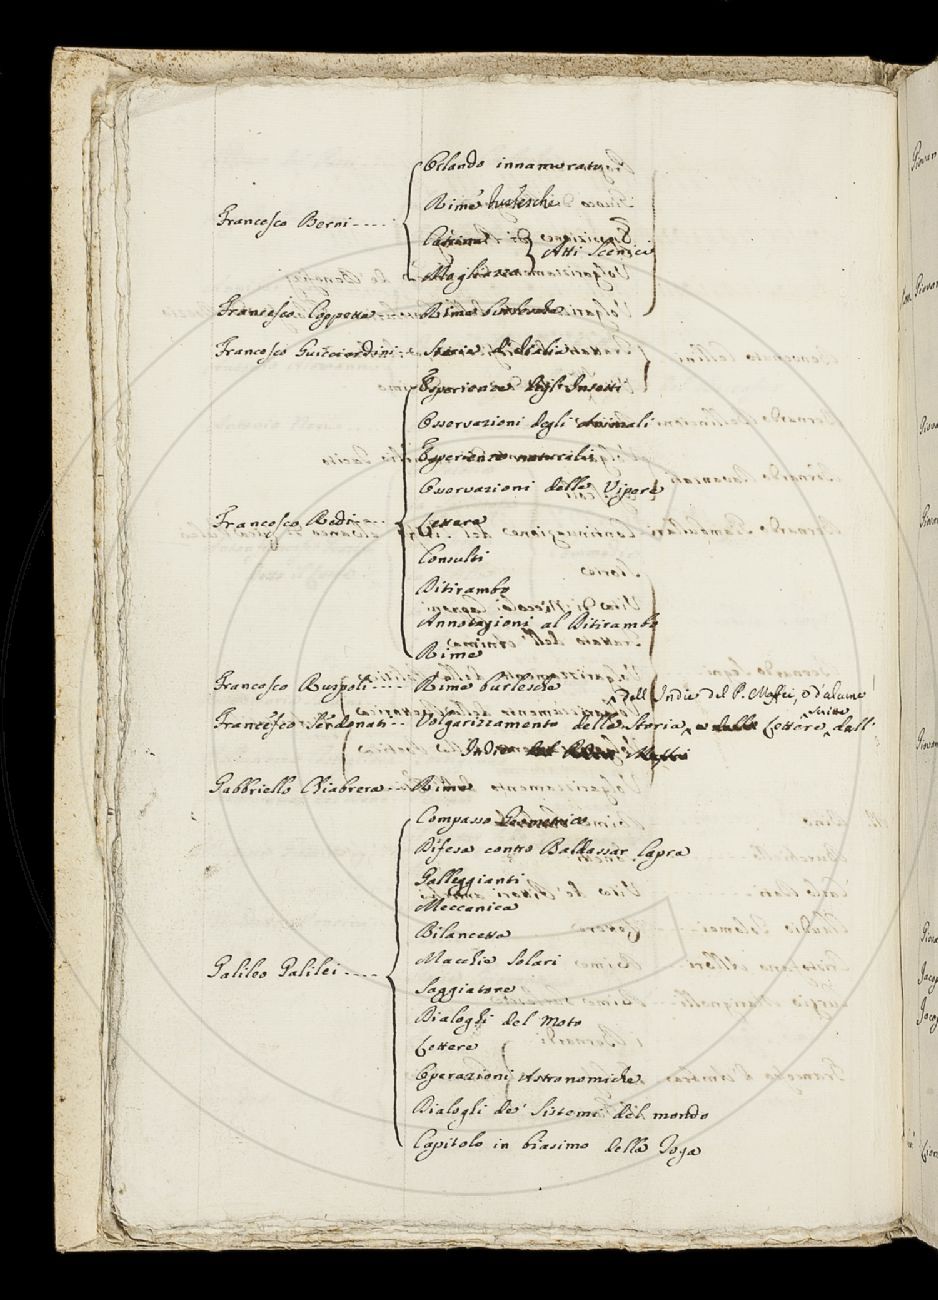 Orlando innamorato
Rime burlesche
Francesco Berni ....
Catrina
Atti Scenici
Mogliazzo
Francesco Coppetta .. Rime burlesche
Francesco Guicciardini .. Storia d'Italia
Esperienze degl'Insetti
Osservazioni degli Animali
Esperienze naturali
Osservazioni delle Vipere
Francesco Redi .... Lettere
Consulti
Ditirambo
Annotazioni al Ditirambo
Rime
Francesco Ruspoli .... Rime burlesche
dell'Indie del P. Maffei, e d'alcune
Francesco Serdonati .. Volgarizzamento della Storia, e delle Lettere scritte dall'
Indie del Maffei
Gabbriello Chiabrera .. Rime
Compasso Geometrico
Difesa contro Baldassar Capra
Galleggianti
Meccanica
Bilancetta
Macchie Solari
Galileo Galilei ....
Saggiatore
Dialoghi del Moto
Lettere
Operazioni Astronomiche
Dialoghi de' Sistemi del mondo
Capitolo in biasimo della Toga